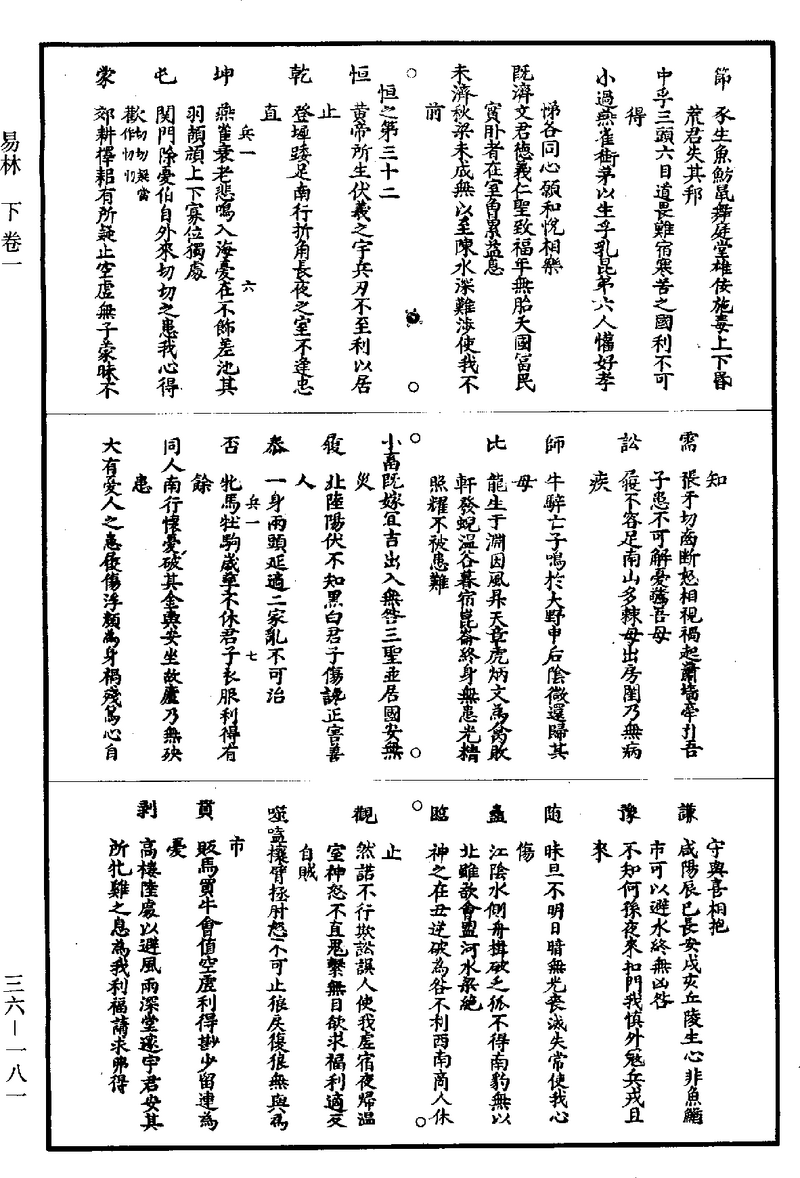 節　豕生魚魴鼠舞庭堂雄佞施毒上下昏
荒君失其邦
中孚三頭六目道畏難宿寒苦之國利不可
得
小過燕雀銜茅以生孚乳昆弟六人懽好孝
悌各同心願和悅相樂
既濟文君德義仁聖致福年無胎夭國富民
實卧者在室曾累益息
未濟秋梁未成無以至陳水深難涉使我不
前
○　○
恒之第三十二
恒　黃帝所生伏羲之宇兵刃不至利以居
止
乾　登堦踒足南行折角長夜之室不逢忠
直
坤　燕雀衰老悲鳴入海憂在不飾差池其
兵一　六
羽頡頏上下寡位獨處
屯　関門除憂伯自外來切切之患我心得
歡作切切疑當忉忉
蒙　郊耕擇耜有所疑止空虛無子蒙昧不
知
需　張矛切齒斷怒相視禍起蕭墻牽引吾
子患不可解憂驚吾母
訟　履不容足南山多棘母出房閨乃無病
疾
師　牛騂亡子鳴於大野申后陰微還歸其
母
比　龍生于淵因風昇天章虎炳文為禽敗
軒發蜺溫谷暮宿崑崙終身無患光精
照耀不被患難
○　○
小畜既嫁宜吉出入無咎三聖並居國安無
災
履　北陸陽伏不知黑白君子傷讒正害善
人
泰　一身兩頭延適二家亂不可治
兵一　七
否　牝馬牡駒歲孳不休君子衣服利得有
餘
同人南行懷憂破其金輿安坐故廬乃無殃
患
大有憂人之患履傷浮願為身禍殘篤心自
守與喜相抱
謙　咸陽辰巳長安戌亥丘陵生心非魚鰌
市可以避水終無凶咎
豫　不知何孫夜來扣門我慎外寇兵戎且
來
随　昧旦不明日暗無光喪滅失常使我心
傷
蠱　江陰水側舟楫破乏狐不得南豹無以
北雖欲會盟河水梁絶
臨　神之在丑逆破為咎不利西南商人休
○　○
止
觀　然諾不行欺訟誤人使我虛宿夜歸溫
室神怒不直鬼繫無目欲求福利適反
自賊
噬嗑攘臂極肘怒不可止狼戾復狠無與為
市
賁　販馬買牛會值空虛利得尠少留連為
憂
剥　高樓陸處以避風雨深堂邃宇君安其
所牝雞之息為我利福請求弗得
易林　下卷一
三六—一八一